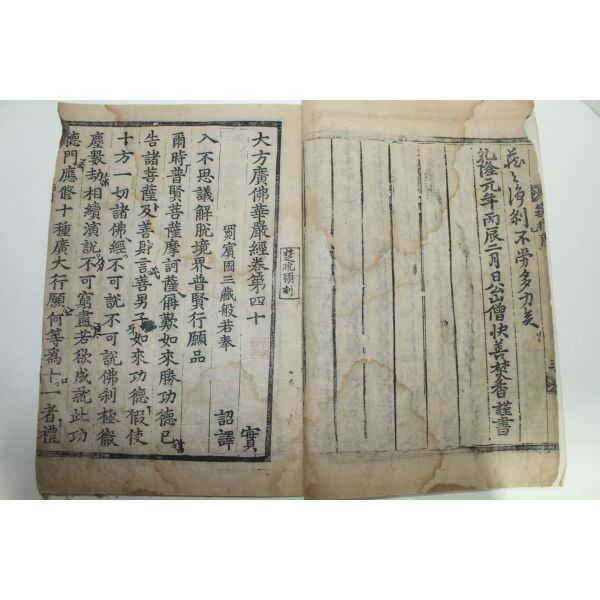 淨刹不勞多力矣
乾隆元年丙辰二月日公山僧快善焚香謹書
大方廣佛華嚴經卷第四十
罽賓國三藏般若奉
詔譯
入不思議解脫境界普賢行願品
爾時普賢菩薩摩訶薩稱歎如來勝功德已
告諸菩薩及善財言善男子如來功德假使
十方一切諸佛經不可說不可說佛刹極微
塵數劫相續演說不可窮盡若欲成就此功
德門應修十種廣大行願何等爲十一者禮